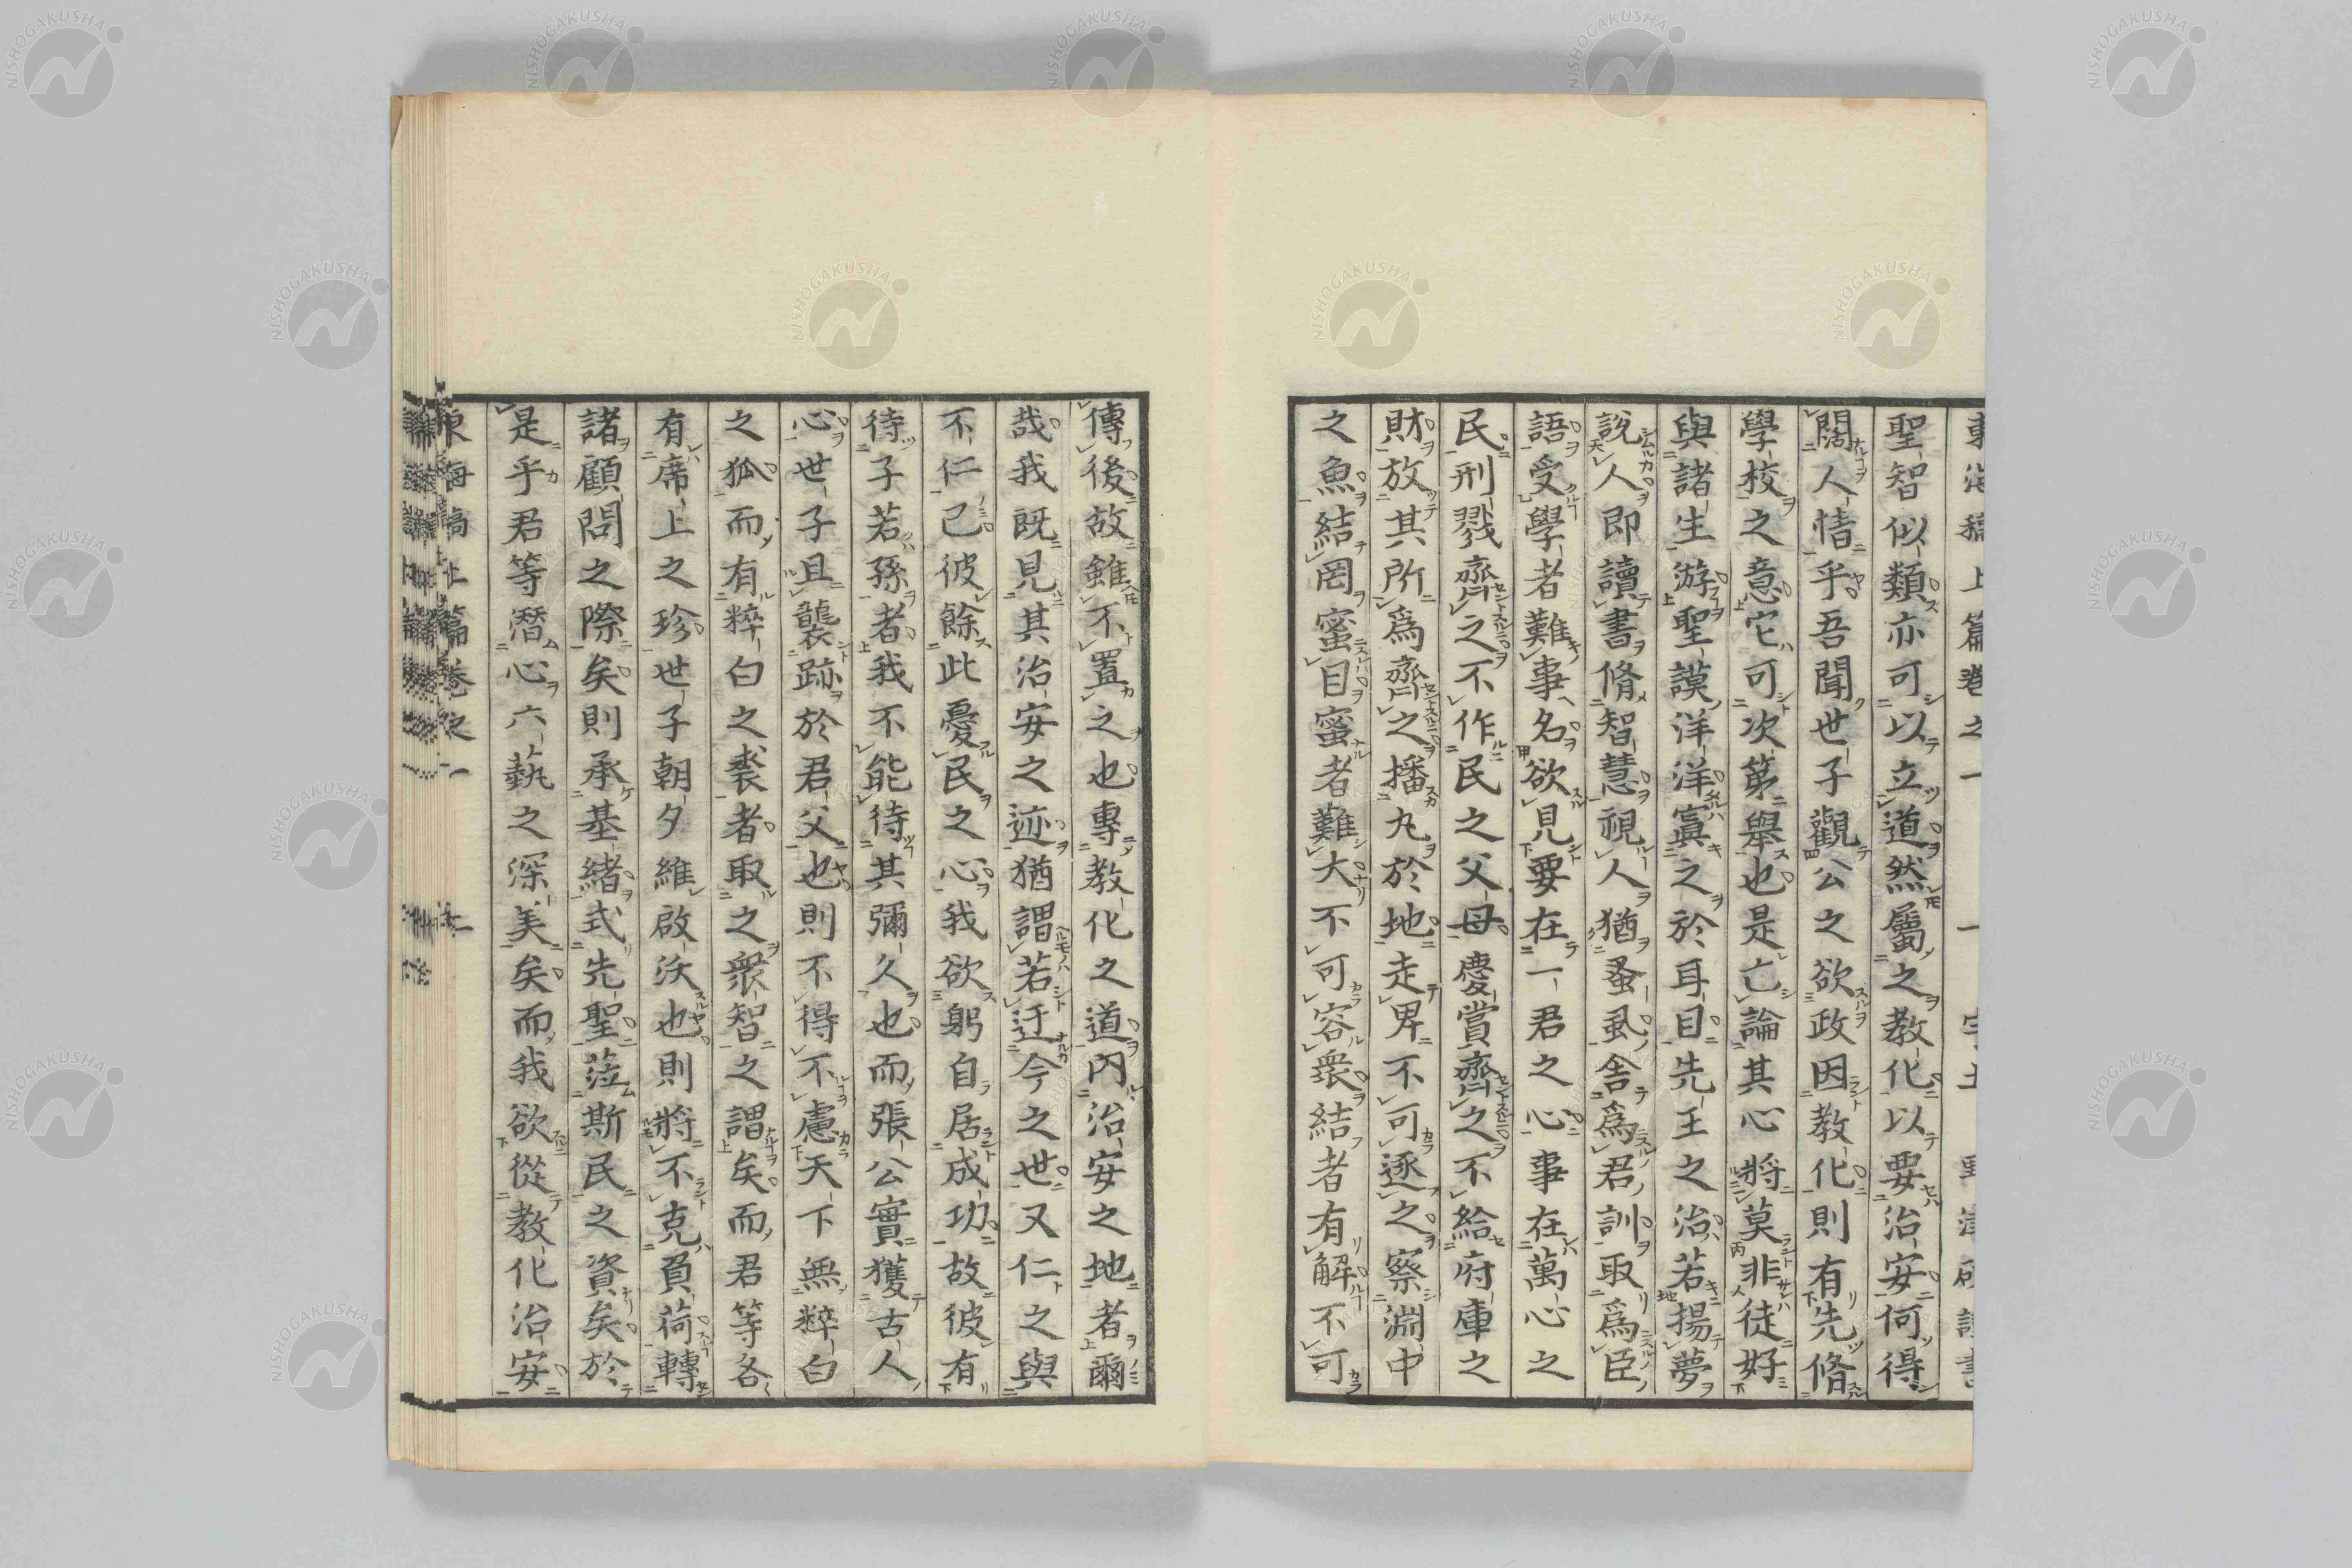 聖智似類亦可以立道然屬之教化以要治安何得
闊人情乎吾聞世子觀公之欲政因教化則有先脩
學校之意它可次第舉也是亡論其心將莫非徒好
與諸生游聖謨洋洋寘之於耳目先王之治若揚夢
說人即讀書脩智慧視人猶蚤虱舎爲君訓取爲臣
語受學者難事名欲見要在一君之心事在萬心之
民刑戮齊之不作民之父母慶賞齊之不給府庫之
財放其所爲齊之播丸於地走卑不可逐之察淵中
之魚結罔蜜目蜜者難大不可容衆結者有解不可
傳後故雖不置之也專教化之道內治安之地者爾
哉我既見其治安之迹猶謂若迂今之世又仁之與
不仁己彼餘此憂民之心我欲躬自居成功故彼有
待子若孫者我不能待其彌久也而張公實獲古人
心世子且襲跡於君父也則不得不慮天下無粹白
之狐而有粹白之裘者取之衆智之謂矣而君等各
有席上之珍世子朝夕維啟沃也則將不克負荷轉
諸顧問之際矣則承基緒式先聖莅斯民之資矣於
是乎君等潛心六藝之深美矣而我欲從教化治安
東海稿上篇卷之一
NISHOGAKUSHA